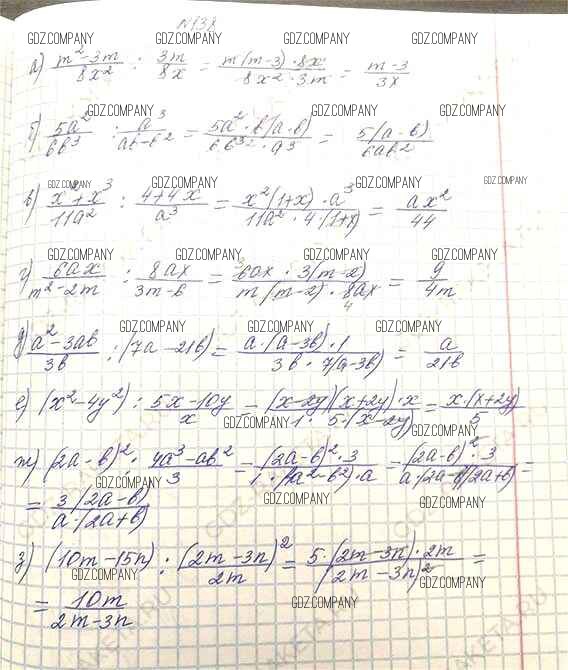 №138
GDZ.COMPANY GDZ.COMPANY GDZ.COMPANY GDZ.COMPANY
а) (m² - 3m)/(8x²) : (3m)/(8x) = (m(m-3)·8x)/(8x²·3m) = (m-3)/(3x)
GDZ.COMPANY GDZ.COMPANY GDZ.COMPANY
б) (5a²)/(6b³) : (a³)/(ab-b²) = (5a²·b(a-b))/(6b³·a³) = (5(a-b))/(6ab²)
GDZ.COMPANY GDZ.COMPANY GDZ.COMPANY GDZ.COMPANY
в) (x²+x³)/(11a²) : (4+4x)/(a³) = (x²(1+x)·a³)/(11a²·4(1+x)) = (ax²)/(44)
GDZ.COMPANY GDZ.COMPANY GDZ.COMPANY GDZ.COMPANY
г) (6ax)/(m²-2m) : (8ax)/(3m-6) = (6ax·3(m-2))/(m(m-2)·8ax) = 9/(4m)
4
GDZ.COMPANY GDZ.COMPANY GDZ.COMPANY
д) (a²-3ab)/(3b) : (7a-21b) = (a·(a-3b)·1)/(3b·7(a-3b)) = a/(21b)
GDZ.COMPANY GDZ.COMPANY GDZ.COMPANY
е) (x²-4y²) : (5x-10y)/x = ((x-2y)(x+2y)·x)/(1·5·(x-2y)) = (x·(x+2y))/5
GDZ.COMPANY GDZ.COMPANY
ж) (2a-b)² : (4a³-ab²)/3 = ((2a-b)²·3)/(1·(4a²-b²)·a) = ((2a-b)²·3)/(a(2a-b)(2a+b)) =
GDZ.COMPANY GDZ.COMPANY GDZ.COMPANY
= (3(2a-b))/(a·(2a+b))
GDZ.COMPANY GDZ.COMPANY GDZ.COMPANY
з) (10m-15n) : (2m-3n)²/(2m) = (5·(2m-3n)·2m)/(2m-3n)² =
GDZ.COMPANY GDZ.COMPANY
= (10m)/(2m-3n)
GDZ.COMPANY